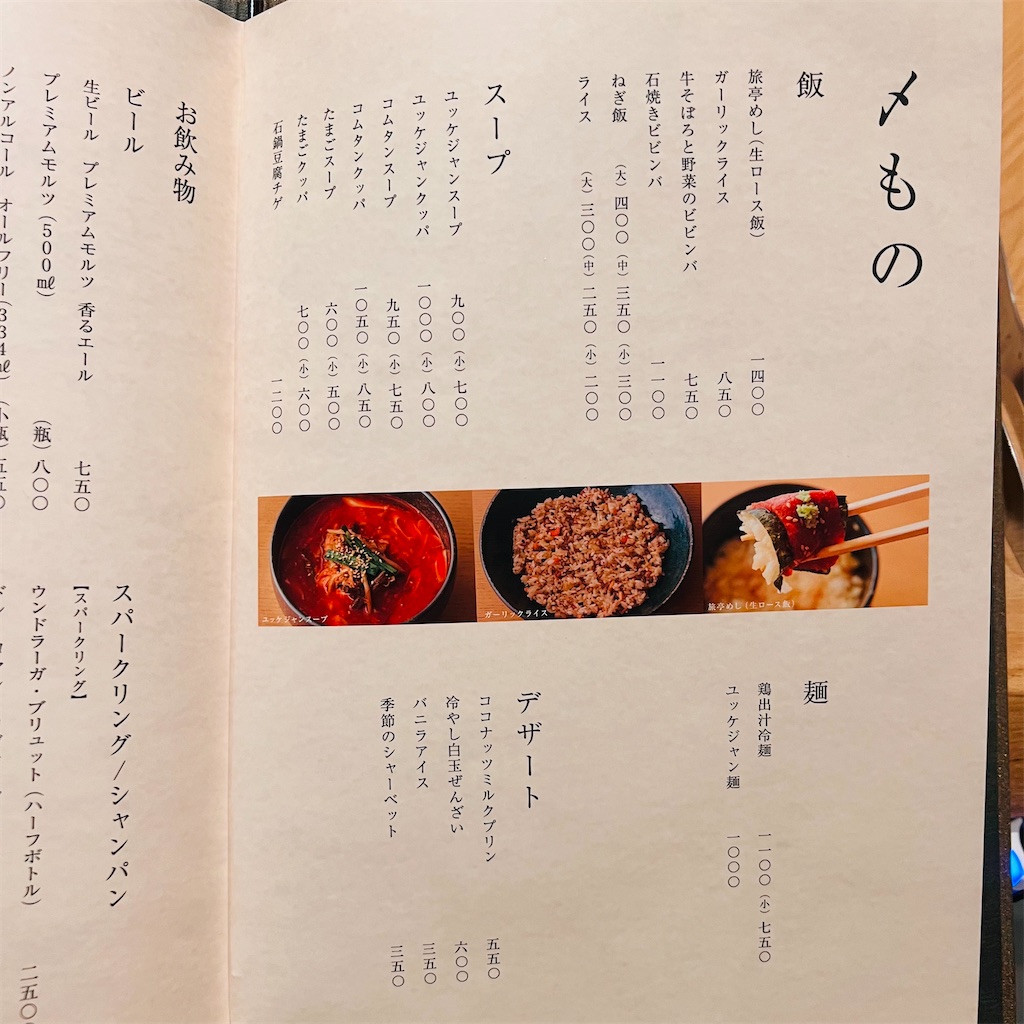 〆もの
飯
旅亭めし（生ロース飯） 一四〇〇
ガーリックライス 八五〇
牛そぼろと野菜のビビンバ 七五〇
石焼きビビンバ 一一〇〇
ねぎ飯 （大）四〇〇（中）三五〇（小）三〇〇
ライス （大）三〇〇（中）二五〇（小）二〇〇
スープ
ユッケジャンスープ 九〇〇（小）七〇〇
ユッケジャンクッパ 一〇〇〇（小）八〇〇
コムタンスープ 九五〇（小）七五〇
コムタンクッパ 一〇五〇（小）八五〇
たまごスープ 六〇〇（小）五〇〇
たまごクッパ 七〇〇（小）六〇〇
石鍋豆腐チゲ 一二〇〇
旅亭めし（生ロース飯）
ガーリックライス
ユッケジャンスープ
麺
鶏出汁冷麺 一一〇〇（小）七五〇
ユッケジャン麺 一〇〇〇
デザート
ココナッツミルクプリン 五五〇
冷やし白玉ぜんざい 六〇〇
バニラアイス 三五〇
季節のシャーベット 三五〇
お飲み物
ビール
生ビール プレミアムモルツ 香るエール 七五〇
プレミアムモルツ（500㎖） （瓶）八〇〇
ノンアルコール オールフリー（334㎖） （小瓶）五五〇
スパークリング/シャンパン
【スパークリング】
ウンドラーガ・ブリュット（ハーフボトル） 二五〇